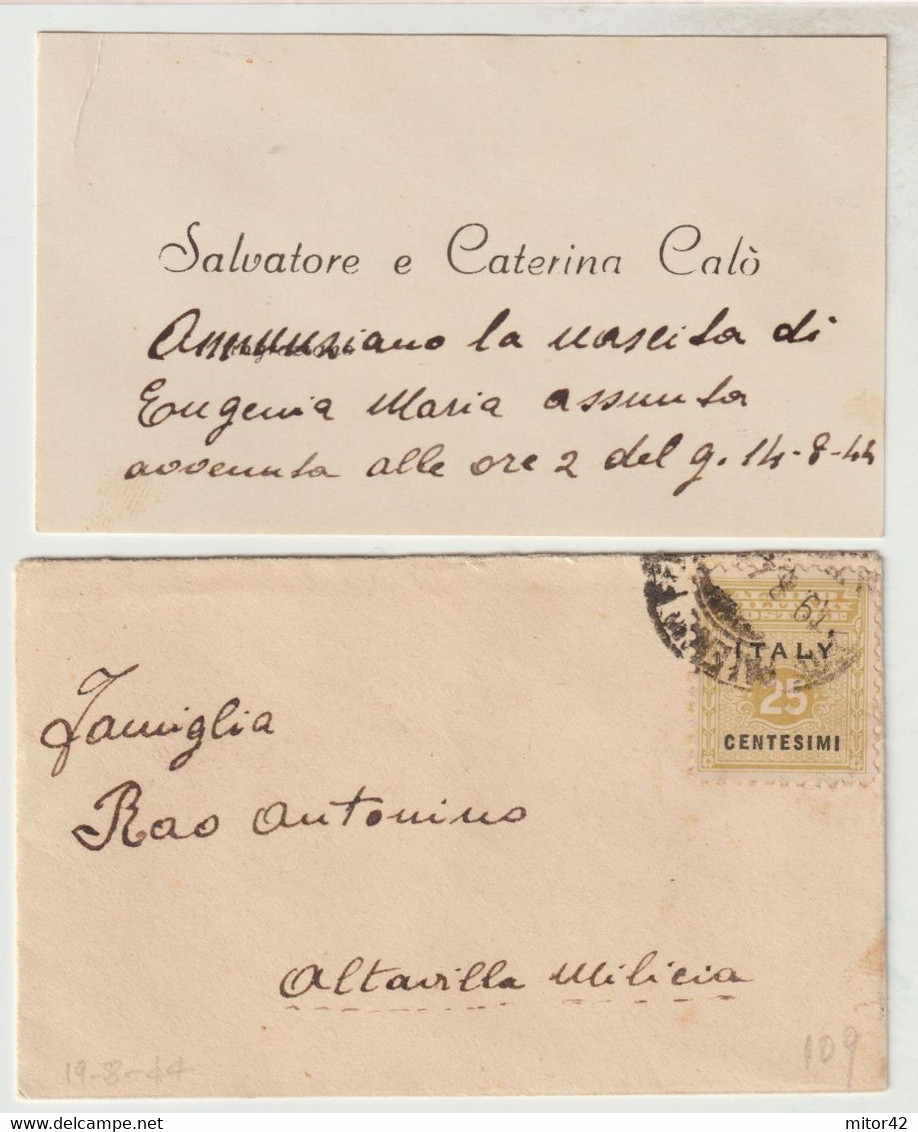 Salvatore e Caterina Calò
Annunziano la nascita di
Eugenia Maria assunta
avvenuta alle ore 2 del g. 14-8-44
ALLIED
MILITARY
POSTAGE
ITALY
25
CENTESIMI
19 8
Famiglia
Rao Antonino
Altavilla Milicia
19-8-44
109
delcampe.net
mitor42